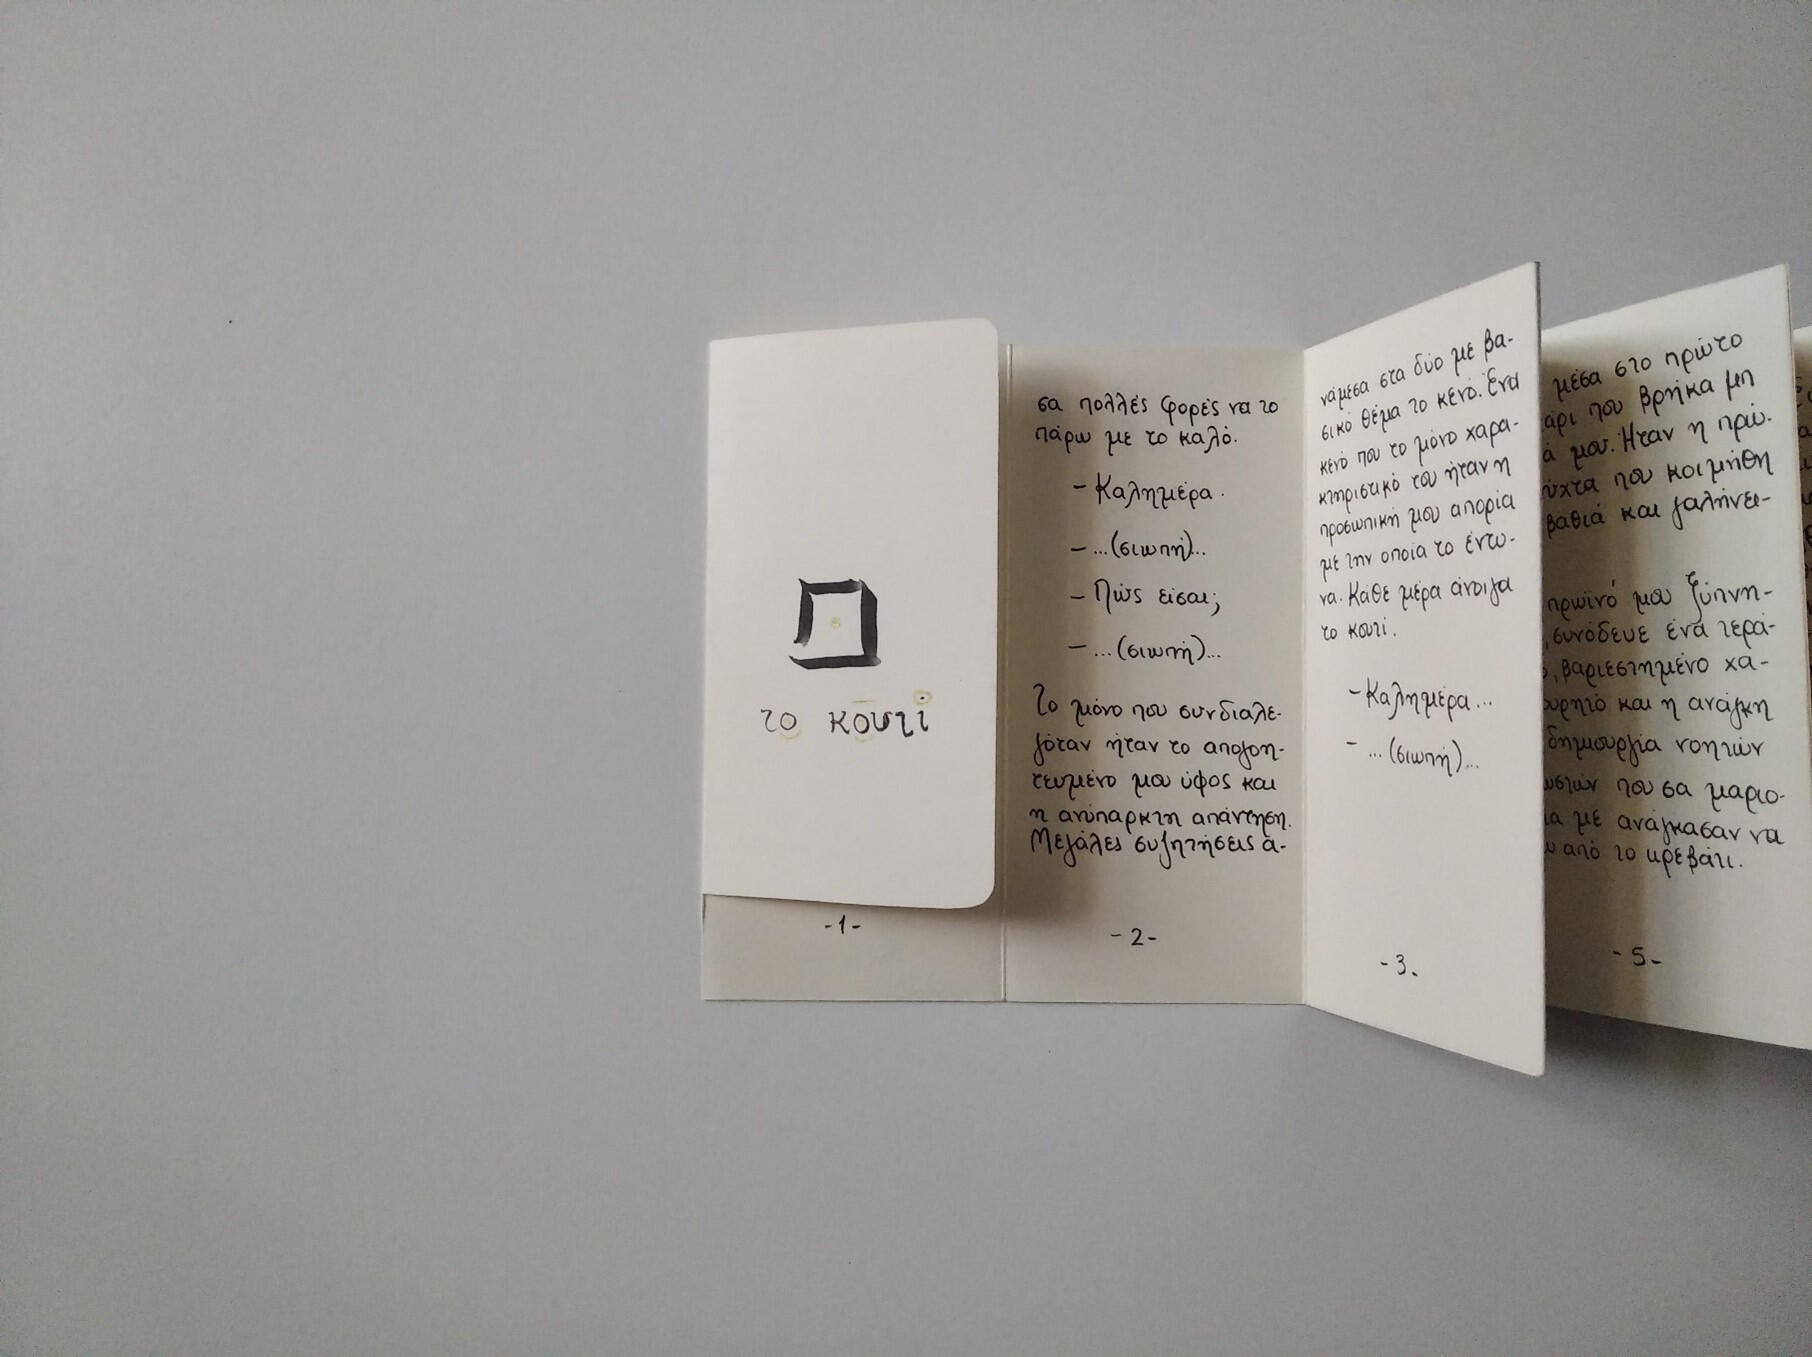 το κουτί
-1-
σα πολλές φορές να το
πάρω με το καλό.
- Καλημέρα.
- ...(σιωπή)...
- Πώς είσαι;
- ...(σιωπή)...
Το μόνο που συνδιαλε-
γόταν ήταν το απογοη-
τευμένο μου ύφος και
η ανύπαρκτη απάντηση.
Μεγάλες συζητήσεις α-
-2-
νάμεσα στα δύο με βα-
σικό θέμα το κενό. Ένα
κενό που το μόνο χαρα-
κτηριστικό του ήταν η
προσωπική μου απορία
με την οποία το έντυ-
να. Κάθε μέρα άνοιγα
το κουτί.
- Καλημέρα...
- ...(σιωπή)...
-3-
μέσα στο πρώτο
που βρήκα μπ
μου. Ήταν η πρώ-
που κοιμήθη
βαθιά και γαλήνει-
πρωϊνό μου ξύπνη-
συνόδευε ένα τερά-
βαριεστημένο χα-
και η ανάγκη
δημιουργία νοητών
που σα μαριο-
με ανάγκασαν να
από το κρεβάτι.
-5-